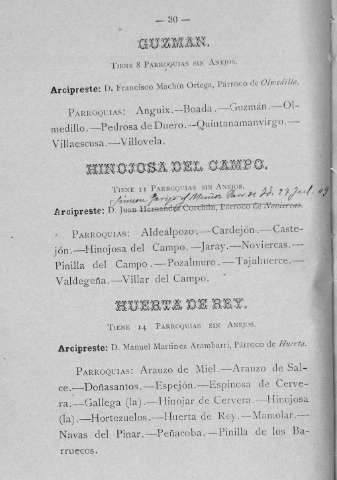 — 30 —
GUZMAN.
TIENE 8 PARROQUIAS SIN ANEJOS.
Arcipreste: D. Francisco Machín Ortega, Párroco de Olmedillo.
PARROQUIAS: Anguix.—Boada.—Guzmán.—Ol-
medillo.—Pedrosa de Duero.—Quintanamanvirgo.—
Villaescusa.—Villovela.
HINOJOSA DEL CAMPO.
TIENE 11 PARROQUIAS SIN ANEJOS.
Simeon
Arcipreste: D. Juan Hernández, Párroco de Noviercas.
PARROQUIAS: Aldealpozo.—Cardejón.—Caste-
jón.—Hinojosa del Campo.—Jaray.—Noviercas.—
Pinilla del Campo.—Pozalmuro.—Tajahuerce.—
Valdegeña.—Villar del Campo.
HUERTA DE REY.
TIENE 14 PARROQUIAS SIN ANEJOS.
Arcipreste: D. Manuel Martínez Arambarri, Párroco de Huerta.
PARROQUIAS: Arauzo de Miel.—Arauzo de Sal-
ce.—Doñasantos.—Espejón.—Espinosa de Cerve-
ra.—Gallega (la).—Hinojar de Cervera.—Hinojosa
(la).—Hortezuelos.—Huerta de Rey.—Mamolar.—
Navas del Pinar.—Peñacoba.—Pinilla de los Ba-
rruecos.